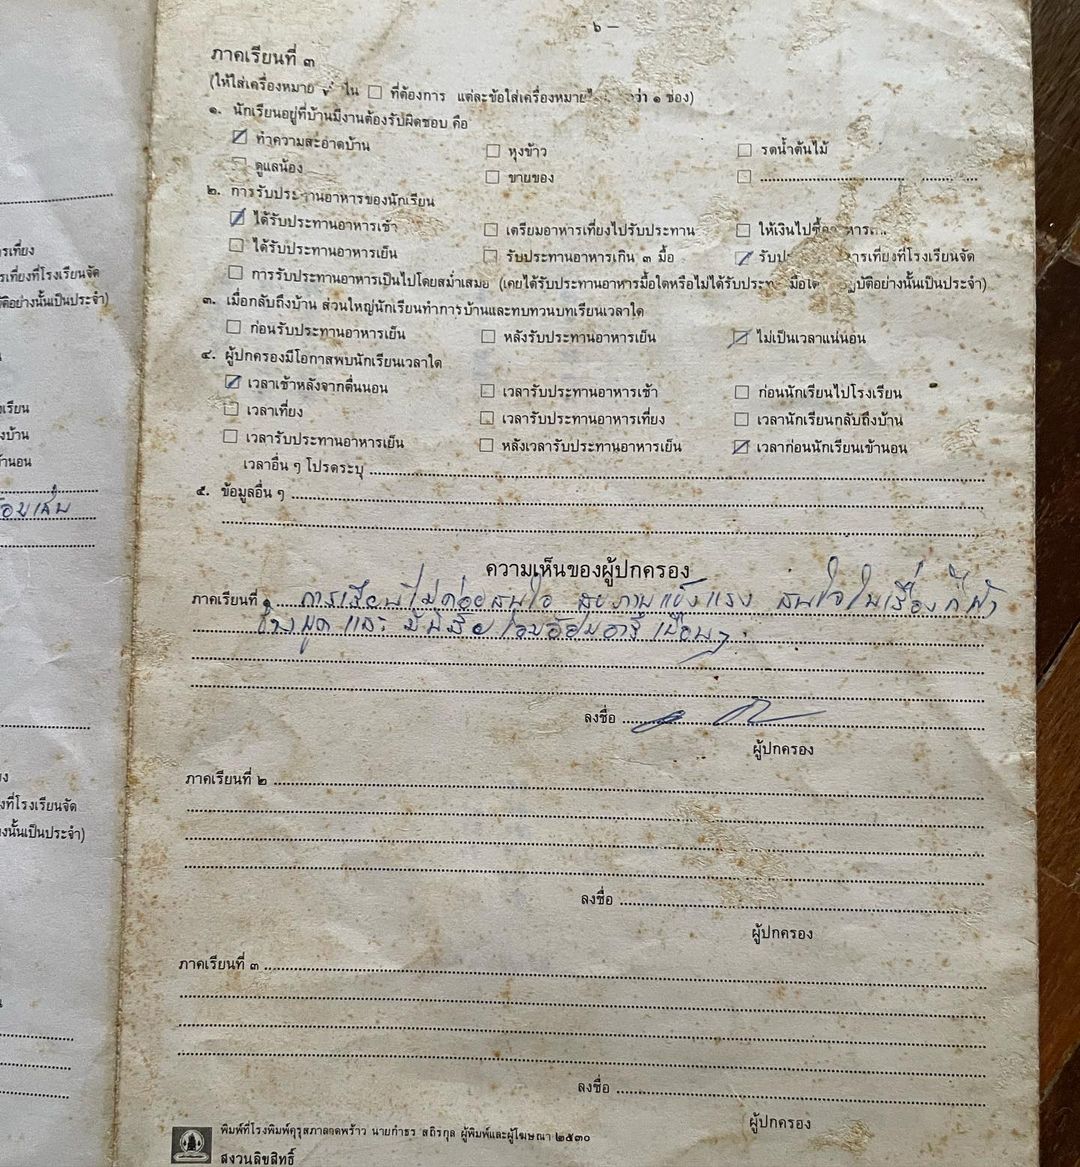 - ๖ -
ภาคเรียนที่ ๓
(ให้ใส่เครื่องหมาย ✓ ใน ☐ ที่ต้องการ แต่ละข้อใส่เครื่องหมาย ๑ ช่อง)
๑. นักเรียนอยู่ที่บ้านมีงานต้องรับผิดชอบ คือ
☑ ทำความสะอาดบ้าน ☐ หุงข้าว ☐ รดน้ำต้นไม้
☐ ดูแลน้อง ☐ ขายของ ☐
๒. การรับประทานอาหารของนักเรียน
☑ ได้รับประทานอาหารเช้า ☐ เตรียมอาหารเที่ยงไปรับประทาน ☐ ให้เงินไปซื้ออาหาร
☐ ได้รับประทานอาหารเย็น ☐ รับประทานอาหารเกิน ๓ มื้อ ☑ รับประทานอาหารเที่ยงที่โรงเรียนจัด
☐ การรับประทานอาหารเป็นไปโดยสม่ำเสมอ (เคยได้รับประทานอาหารมื้อใดหรือไม่ได้รับประทานมื้อใด ปฏิบัติอย่างนั้นเป็นประจำ)
๓. เมื่อกลับถึงบ้าน ส่วนใหญ่นักเรียนทำการบ้านและทบทวนบทเรียนเวลาใด
☐ ก่อนรับประทานอาหารเย็น ☐ หลังรับประทานอาหารเย็น ☑ ไม่เป็นเวลาแน่นอน
๔. ผู้ปกครองมีโอกาสพบนักเรียนเวลาใด
☑ เวลาเช้าหลังจากตื่นนอน ☐ เวลารับประทานอาหารเช้า ☐ ก่อนนักเรียนไปโรงเรียน
☐ เวลาเที่ยง ☐ เวลารับประทานอาหารเที่ยง ☐ เวลานักเรียนกลับถึงบ้าน
☐ เวลารับประทานอาหารเย็น ☐ หลังเวลารับประทานอาหารเย็น ☑ เวลาก่อนนักเรียนเข้านอน
เวลาอื่น ๆ โปรดระบุ
๕. ข้อมูลอื่น ๆ
ความเห็นของผู้ปกครอง
ภาคเรียนที่ ๑ การเรียนไม่ค่อยสนใจ สุขภาพแข็งแรง สนใจในเรื่องกีฬา
ช่างพูดและ มีนิสัย เพื่อนๆ
ลงชื่อ
ผู้ปกครอง
ภาคเรียนที่ ๒
ลงชื่อ
ผู้ปกครอง
ภาคเรียนที่ ๓
ลงชื่อ
ผู้ปกครอง
พิมพ์ที่โรงพิมพ์คุรุสภาลาดพร้าว นายกำธร สถิรกุล ผู้พิมพ์และผู้โฆษณา ๒๕๓๐
สงวนลิขสิทธิ์